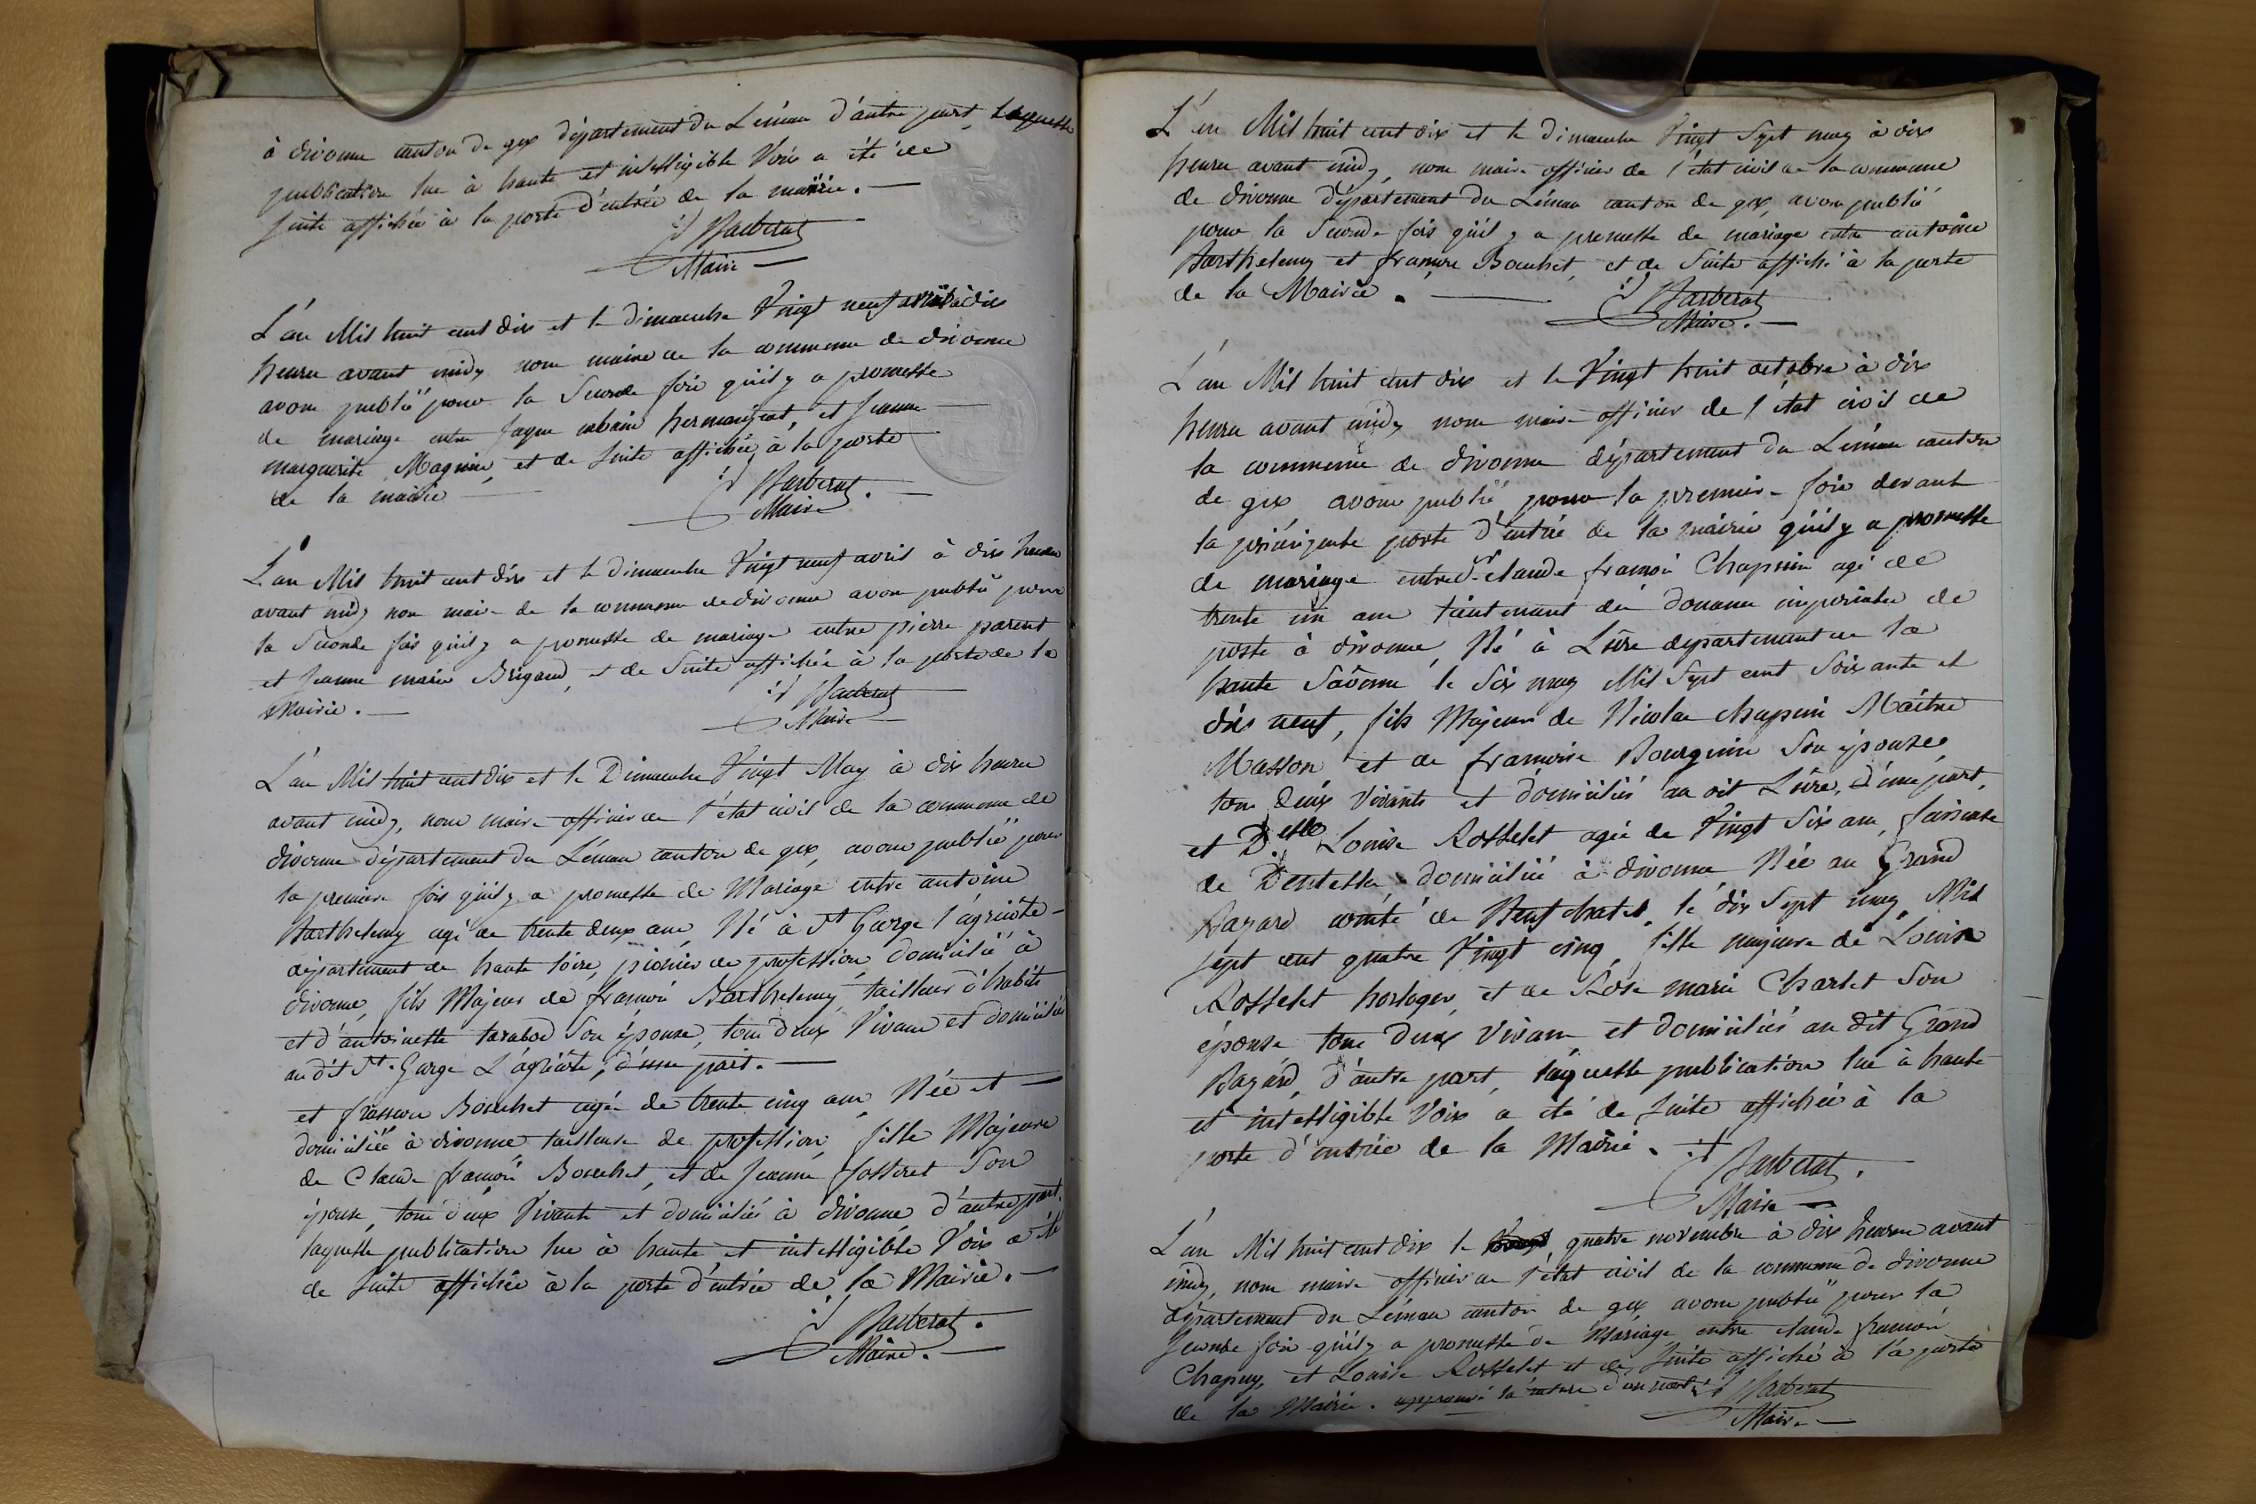 à divonne canton de gex département du Léman d'autre part, laquelle
publication lue à haute et intelligible Voix a été de
suite affichée à la porte d'entrée de la mairie. —
Barberat
Maire —
L'an Mil huit cent dix et le dimanche Vingt neuf avril à dix
heures avant midy nous maire de la commune de divonne
avons publié pour la Seconde fois qu'il y a promesse
de mariage entre jaque urbain hermanjat, et jeanne
marguerite Magnin, et de suite affichée à la porte
de la mairie —
Barberat.
Maire
L'an Mil huit cent dix et le dimanche Vingt neuf avril à dix heures
avant midy nous maire de la commune de divonne avons publié pour
la Seconde fois qu'il y a promesse de mariage entre pierre parent
et jeanne marie Brigand, et de Suite affichée à la porte de la
Mairie. —
Barberat
Maire
L'an Mil huit cent dix et le Dimanche Vingt May à dix heures
avant midy, nous maire officier de l'état civil de la commune de
divonne département du Léman canton de gex, avons publié pour
la premiere fois qu'il y a promesse de Mariage entre antoine
Barthelemy agé de trente deux ans, Né à St George l'agricôte
département de haute loire, pionier de profession, domicilié à
divonne, fils Majeur de françois Barthelemy, tailleur d'habits
et d'antoinette tarabod Son épouse, tous deux Vivans et domiciliés
au dit St. George L'agricôte, d'une part. —
et françoise Bouchet agée de trente cinq ans, Née et —
domiciliée à divonne, tailleuse de profession, fille Majeure
de Claude françois Bouchet, et de jeanne fosseret Son
épouse, tous deux Vivants et domiciliés à divonne d'autre part.
laquelle publication lue à haute et intelligible Voix a été
de suite affichée à la porte d'entrée de la Mairie. —
Barberat.
Maire. —
L'an Mil huit cent dix et le dimanche Vingt Sept may à dix
heures avant midy, nous maire officier de l'état civil de la commune
de divonne département du Léman canton de gex, avons publié
pour la Seconde fois qu'il y a promesse de mariage entre antoine
Barthelemy et françoise Bouchet, et de Suite affiché à la porte
de la Mairie. —
Barberat
Maire. —
L'an Mil huit cent dix et le Vingt huit octobre à dix
heures avant midy nous maire officier de l'état civil de
la commune de divonne département du Léman canton
de gex avons publié pour la premiere fois devant
la principale porte d'entrée de la mairie qu'il y a promesse
de mariage entre Sr. claude françois Chapuin agé de
trente un ans lieutenant des douanes imperiales de
poste à divonne, Né à Lûre departement de la
haute Sâonne le Six may Mil Sept cent Soixante et
dix neuf, fils Majeur de Nicolas chapuin Maître
Masson, et de françoise Bourgnin Son épouse
tous deux Vivants et domiciliés au dit Lûre, d'une part,
et Delle Louise Rosselet agée de Vingt Six ans, faiseuse
de Dentelles domicilié à divonne Née au Grand
Bazard comté de Neufchatel, le dix Sept may Mil
sept cent quatre Vingt cinq, fille majeure de Louis
Rosselet horloger, et de Rose marie Charlet Son
épouse tous deux Vivans et domiciliés au dit Grand
Bazard, d'autre part, laquelle publication lue à haute
et intelligible Voix a été de suite affichée à la
porte d'entrée de la Mairie.
Barberat.
Maire —
L'an Mil huit cent dix le quatre novembre à dix heures avant
midy, nous maire officier de l'état civil de la commune de divonne
département du Léman canton de gex avons publié pour la
seconde fois qu'il y a promesse de Mariage entre claude françois
Chapuy, et Louise Rosselet et de suite affiché à la porte
de la Mairie. approuvé la rature d'un mot
Barberat
Maire —